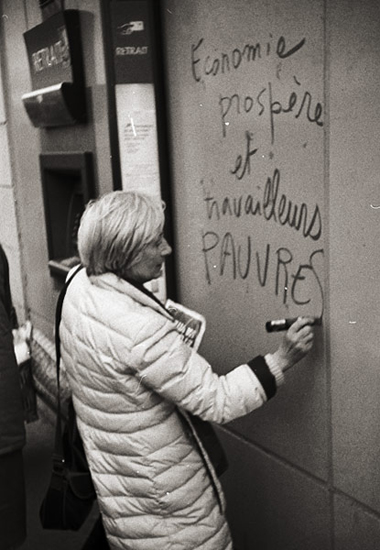 RETRAIT
RETRAIT
Economie
prospère
et
travailleurs
PAUVRES